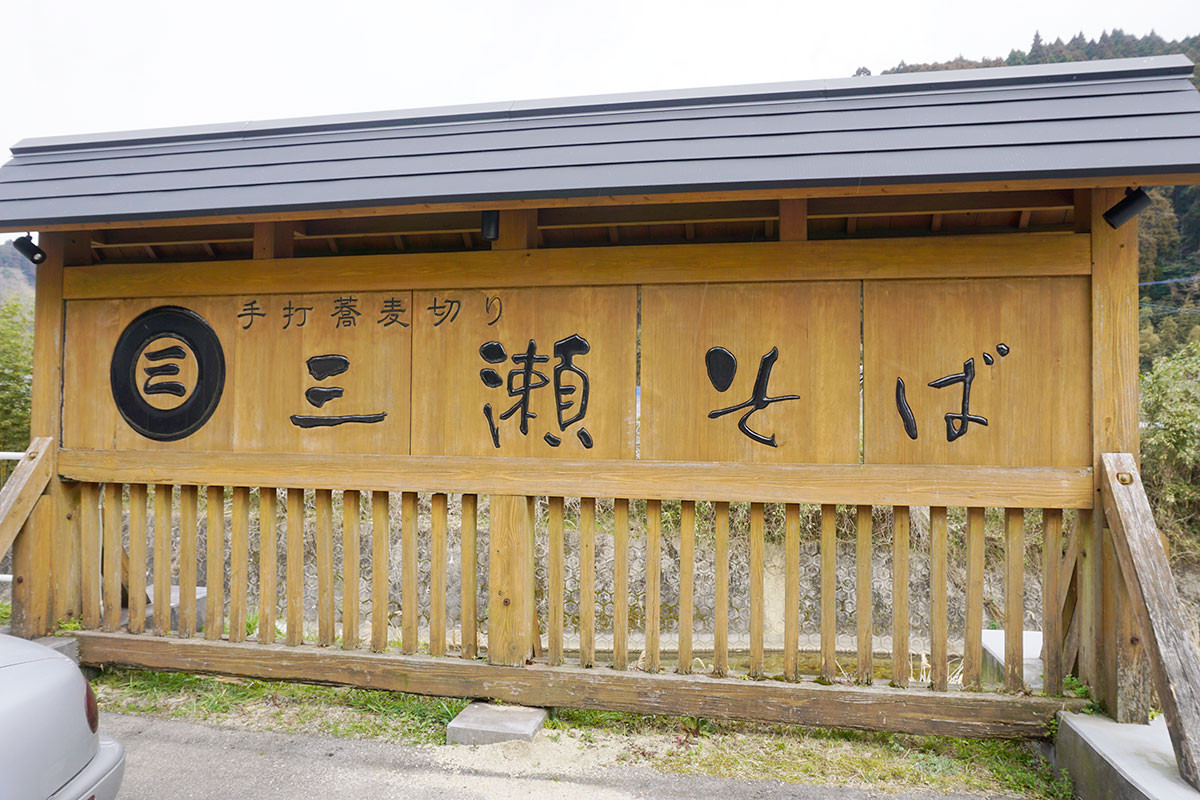 手打蕎麦切り
三 三瀬そば